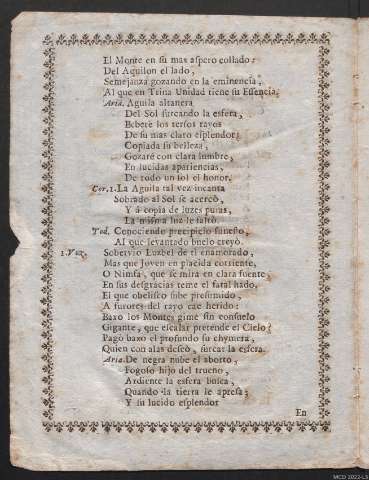 El Monte en su mas aspero collado:
Del Aquilon el lado,
Semejanza gozando en la eminencia,
Al que en Trina Unidad tiene su Essencia.
Aria. Aguila altanera
Del Sol surcando la esfera,
Beberè los tersos rayos
De su mas claro esplendor:
Copiada su belleza,
Gozarè con clara lumbre,
En lucidas apariencias,
De todo un sol el honor.
Cor.1. La Aguila tal vez incauta
Sobrado al Sol se acercò,
Y à copia de luzes puras,
La misma luz le faltò.
Tod. Conociendo precipicio funesto,
Al que levantado buelo creyò.
1.Voz. Sobervio Luzbel de ti enamorado,
Mas que Joven en placida corriente,
O Nimfa, que se mira en clara fuente,
En sus desgracias teme el fatal hado.
El que obelisco sube presumido,
A furores del rayo cae herido:
Baxo los Montes gime sin consuelo
Gigante, que escalar pretende el Cielo?
Pagò baxo el profundo su chymera,
Quien con alas deseò, surcar la esfera.
Aria. De negra nube el aborto,
Fogoso hijo del trueno,
Ardiente la esfera busca,
Quando la tierra le apresa;
Y su lucido esplendor
En
MCD 2022-L5